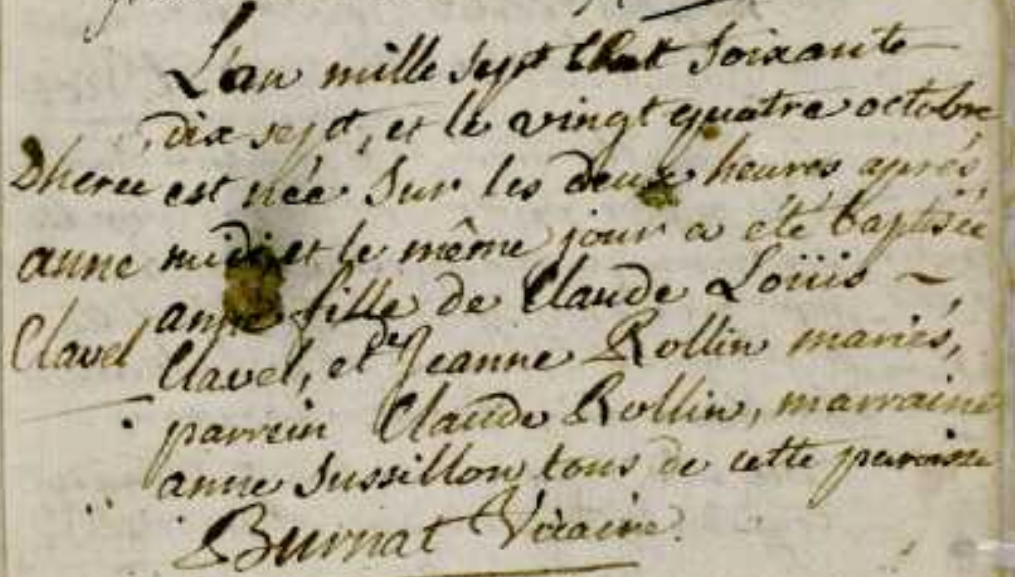 L'an mille sept cent soixante
dix sept, et le vingt quatre octobre
est née sur les deux heures après
midi et le même jour a été baptisée
anne fille de Claude Loüis ~
Clavel, et de Jeanne Rollin mariés,
parrein Claude Rollin, marraine
anne Sussillon tous de cette paroisse
Burnat Vicaire.
anne
Clavel